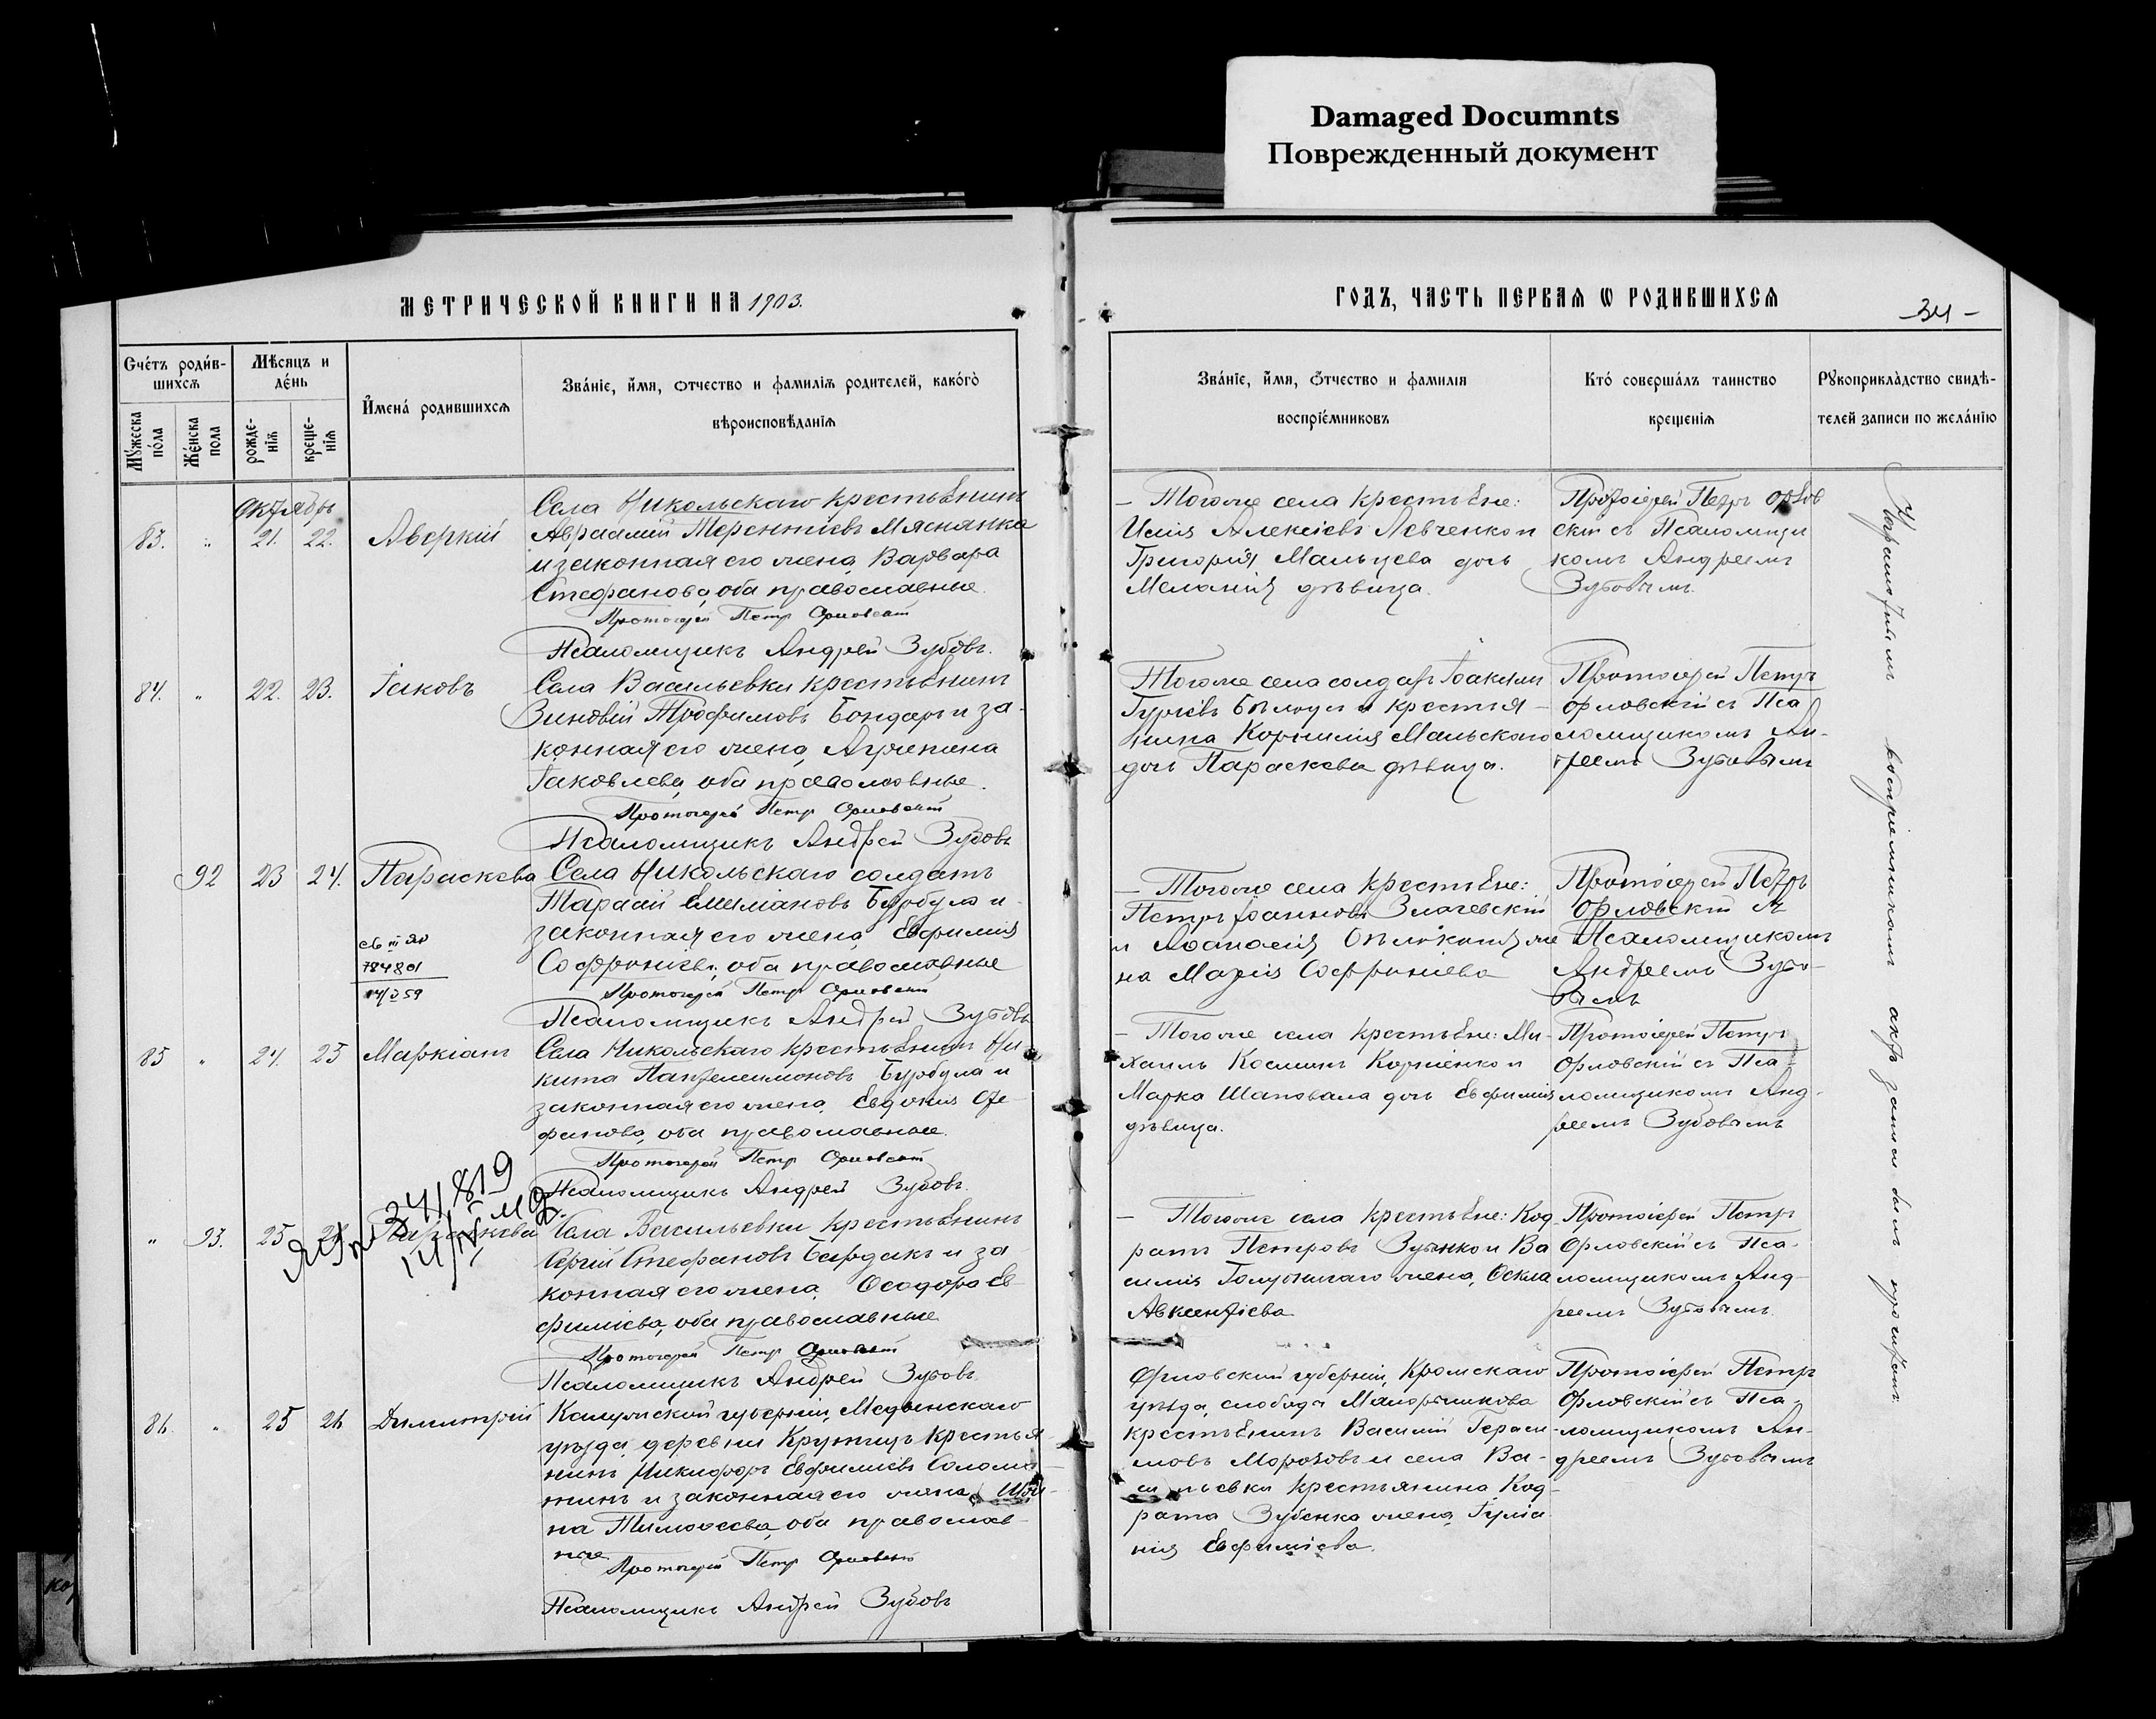 Damaged Documnts
Поврежденный документ
МЕТРИЧЕСКОЙ КНИГИ НА 1903.
ГОДЪ, ЧАСТЬ ПЕРВАЯ Ѡ РОДИВШИХСЯ
-34-
Счétъ роди́в-
шихсѧ
Мѣсяцъ и
де́нь
И҆мена́ родившихсѧ
Зва́нїе, и҆́мя, ѻтчество и фамилїѧ родителей, како́гѡ
вѣроисповѣданїѧ
Мꙋ́жеска
по́ла
Же́нска
пола
рожде-
нїѧ
креще-
нїѧ
Зва́нїе, и҆́мя, ѻтчество и фамилїя
воспрїе́мниковъ
Кто́ совершáлъ таинство
крещенїѧ
Рꙋкоприкла́дство свидѣ-
телей записи по жела́нїю
Октябрь
83. " 21. 22. Аверкій
Села Никольскаго крестьянинъ
Авраамій Терентіевъ Мяснянка
и законная его жена Варвара
Стефанова, оба православные.
Протоіерей Петр Орловскій
Псаломщикъ Андрей Зубовъ.
— Тогоже села крестьяне:
Исаія Алексіевъ Левченко и
Григорія Мальцева дочь
Меланія дѣвица.
Протоіерей Петръ Орлов
скій съ Псаломщи
комъ Андреемъ
Зубовымъ.
84. " 22. 23. Іаковъ
Села Васильевки крестьянинъ
Зиновій Трофимовъ Бондарь и за-
конная его жена, Агрипина
Іаковлева, оба православные.
Протоіерей Петр Орловскій
Псаломщикъ Андрей Зубовъ
Тогоже села солдатъ Іоакимъ
Гуріевъ и крестья-
нина Корнилія Мальскаго
дочь Параскева дѣвица.
Протоіерей Петръ
Орловскій съ Пса
ломщикомъ Ан-
дреемъ Зубовымъ
92 23 24. Параскева
784801
Села Никольскаго солдатъ
Тарасій Емеліановъ Бурбула и
законная его жена Евфимія
Софроніева, оба православные
Протоіерей Петр Орловскій
Псаломщикъ Андрей Зубовъ
— Тогоже села крестьяне:
Петръ Іоанновъ Злачевскій
и Аѳанасія же
на Марія Софроніева
Протоіерей Петръ
Орловскій съ
Псаломщикомъ
Андреемъ Зубо-
вымъ
85 " 24. 25 Маркіанъ
Села Никольскаго крестьянинъ Ни-
кита Пантелеимоновъ Бурбула и
законная его жена Евдокія Сте-
фанова, оба православные.
Протоіерей Петр Орловскій
Псаломщикъ Андрей Зубовъ.
— Тогоже села крестьяне: Ми-
хаилъ Косминъ Корніенко и
Марка Шаповала дочь Евфимія
дѣвица.
Протоіерей Петръ
Орловскій съ Пса-
ломщикомъ Анд-
реемъ Зубовымъ
341819
" 93. 25 Параскева
Села Васильевки крестьянинъ
Сергій Стефановъ Бардакъ и за
конная его жена Ѳеодора Ев-
фиміева, оба православные
Протоіерей Петр Орловскій
Псаломщикъ Андрей Зубовъ.
— Тогоже села крестьяне: Код
ратъ Петровъ Зубенко и Ва
силія Голубничаго жена, Ѳекла
Авксентіева
Протоіерей Петръ
Орловскій съ Пса-
ломщикомъ Анд-
реемъ Зубовымъ.
86. " 25 26 Димитрій
Калужской губерніи, Медынскаго
уѣзда, деревни Крутицъ крестья-
нинъ Никифоръ Евфиміевъ
и законная его жена,
на Тимоѳеева, оба православ-
ные
Протоіерей Петр Орловскій
Псаломщикъ Андрей Зубовъ
Орловской губерніи, Кромскаго
уѣзда, слобода
крестьянинъ Василій Гераси-
мовъ Морозовъ и села Ва-
сильевки крестьянина Код-
рата Зубенка жена, Іулiа
нія Евфиміева.
Протоіерей Петръ
Орловскій съ Пса-
ломщикомъ Ан-
дреемъ Зубовымъ
Неграмотнымъ воспріемникамъ актъ записи былъ прочитанъ.